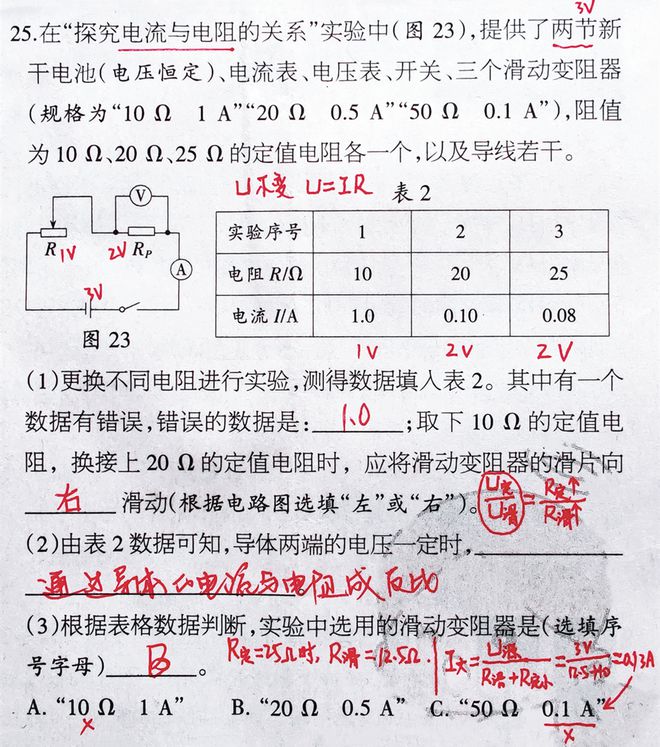 3V
25.在“探究电流与电阻的关系”实验中(图 23),提供了两节新
干电池(电压恒定)、电流表、电压表、开关、三个滑动变阻器
(规格为“10 Ω 1 A”“20 Ω 0.5 A”“50 Ω 0.1 A”),阻值
为 10 Ω、20 Ω、25 Ω 的定值电阻各一个,以及导线若干。
U不变 U=IR 表 2
V
R 1V 2V RP
A
3V
图 23
实验序号 1 2 3
电阻 R/Ω 10 20 25
电流 I/A 1.0 0.10 0.08
1V 2V 2V
(1)更换不同电阻进行实验,测得数据填入表 2。其中有一个
数据有错误,错误的数据是: 1.0 ;取下 10 Ω 的定值电
阻，换接上 20 Ω 的定值电阻时，应将滑动变阻器的滑片向
右 滑动(根据电路图选填“左”或“右”)。 U定/U滑=R定↑/R滑↑
(2)由表 2 数据可知,导体两端的电压一定时,
通过导体的电流与电阻成反比
(3)根据表格数据判断,实验中选用的滑动变阻器是(选填序
号字母) B 。 R定=25Ω时, R滑=12.5Ω. I大=U源/R滑+R定小=3V/12.5+10=0.13A
A. “10 Ω 1 A” B. “20 Ω 0.5 A” C. “50 Ω 0.1 A”
× ×